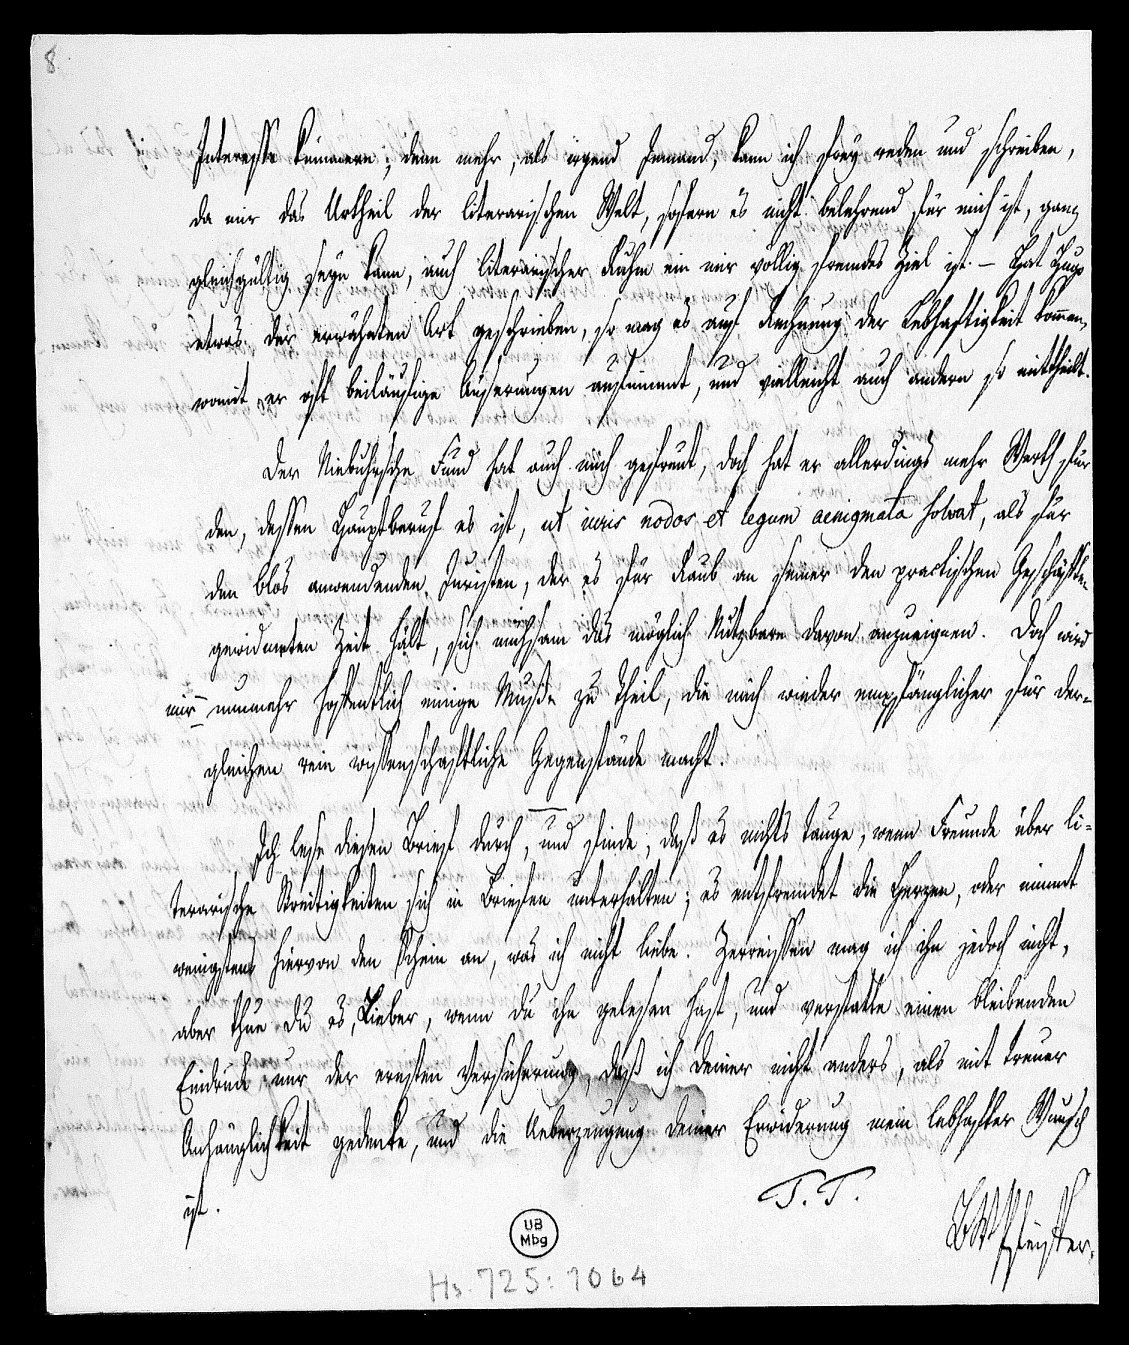 8.
Interesse kümmern; denn mehr, als irgend Jemand, kann ich frey reden und schreiben,
da mir das Urtheil der literarischen Welt, sofern es nicht belehrend für mich ist, ganz
gleichgültig seyn kann, auch literarischer Ruhm ein mir völlig fremdes Ziel ist. – Hat Hugo
etwas der erwähnten Art geschrieben, so mag es auf Rechnung der Lebhaftigkeit kommen,
womit er oft beiläufige Äußerungen aufnimmt, und vielleicht auch andern so mittheilt.
Der Niebuhrsche Fund hat auch mich gefreut, doch hat er allerdings mehr Werth für
den, dessen Hauptberuf es ist, ut iuris nodos et legum aenigmata solvat, als für
den blos anwendenden Juristen, der es für Raub an seiner den practischen Geschäften
gewidmeten Zeit hält, sich mühsam das möglich Nutzbare davon anzueignen. Doch wird
mir nunmehr hoffentlich einige Muße zu Theil, die mich wieder empfänglicher für der-
gleichen rein wissenschaftliche Gegenstände macht.
Ich lese diesen Brief durch, und finde, daß es nichts tauge, wenn Freunde über li-
terarische Streitigkeiten sich in Briefen unterhalten; es entfremdet die Herzen, oder nimmt
wenigstens hiervon den Schein an, was ich nicht liebe. Zerreissen mag ich ihn jedoch nicht,
aber thue du es, Lieber, wenn du ihn gelesen hast, und verstatte einen bleibenden
Eindruck nur der ernsten Versicherung, daß ich deiner nicht anders, als mit treuer
Anhänglichkeit gedenke, und die Ueberzeugung deiner Erwiderung mein lebhafter Wunsch
ist.
T. T.
BWPfeiffer.
UB
Mbg
Hs. 725: 1064